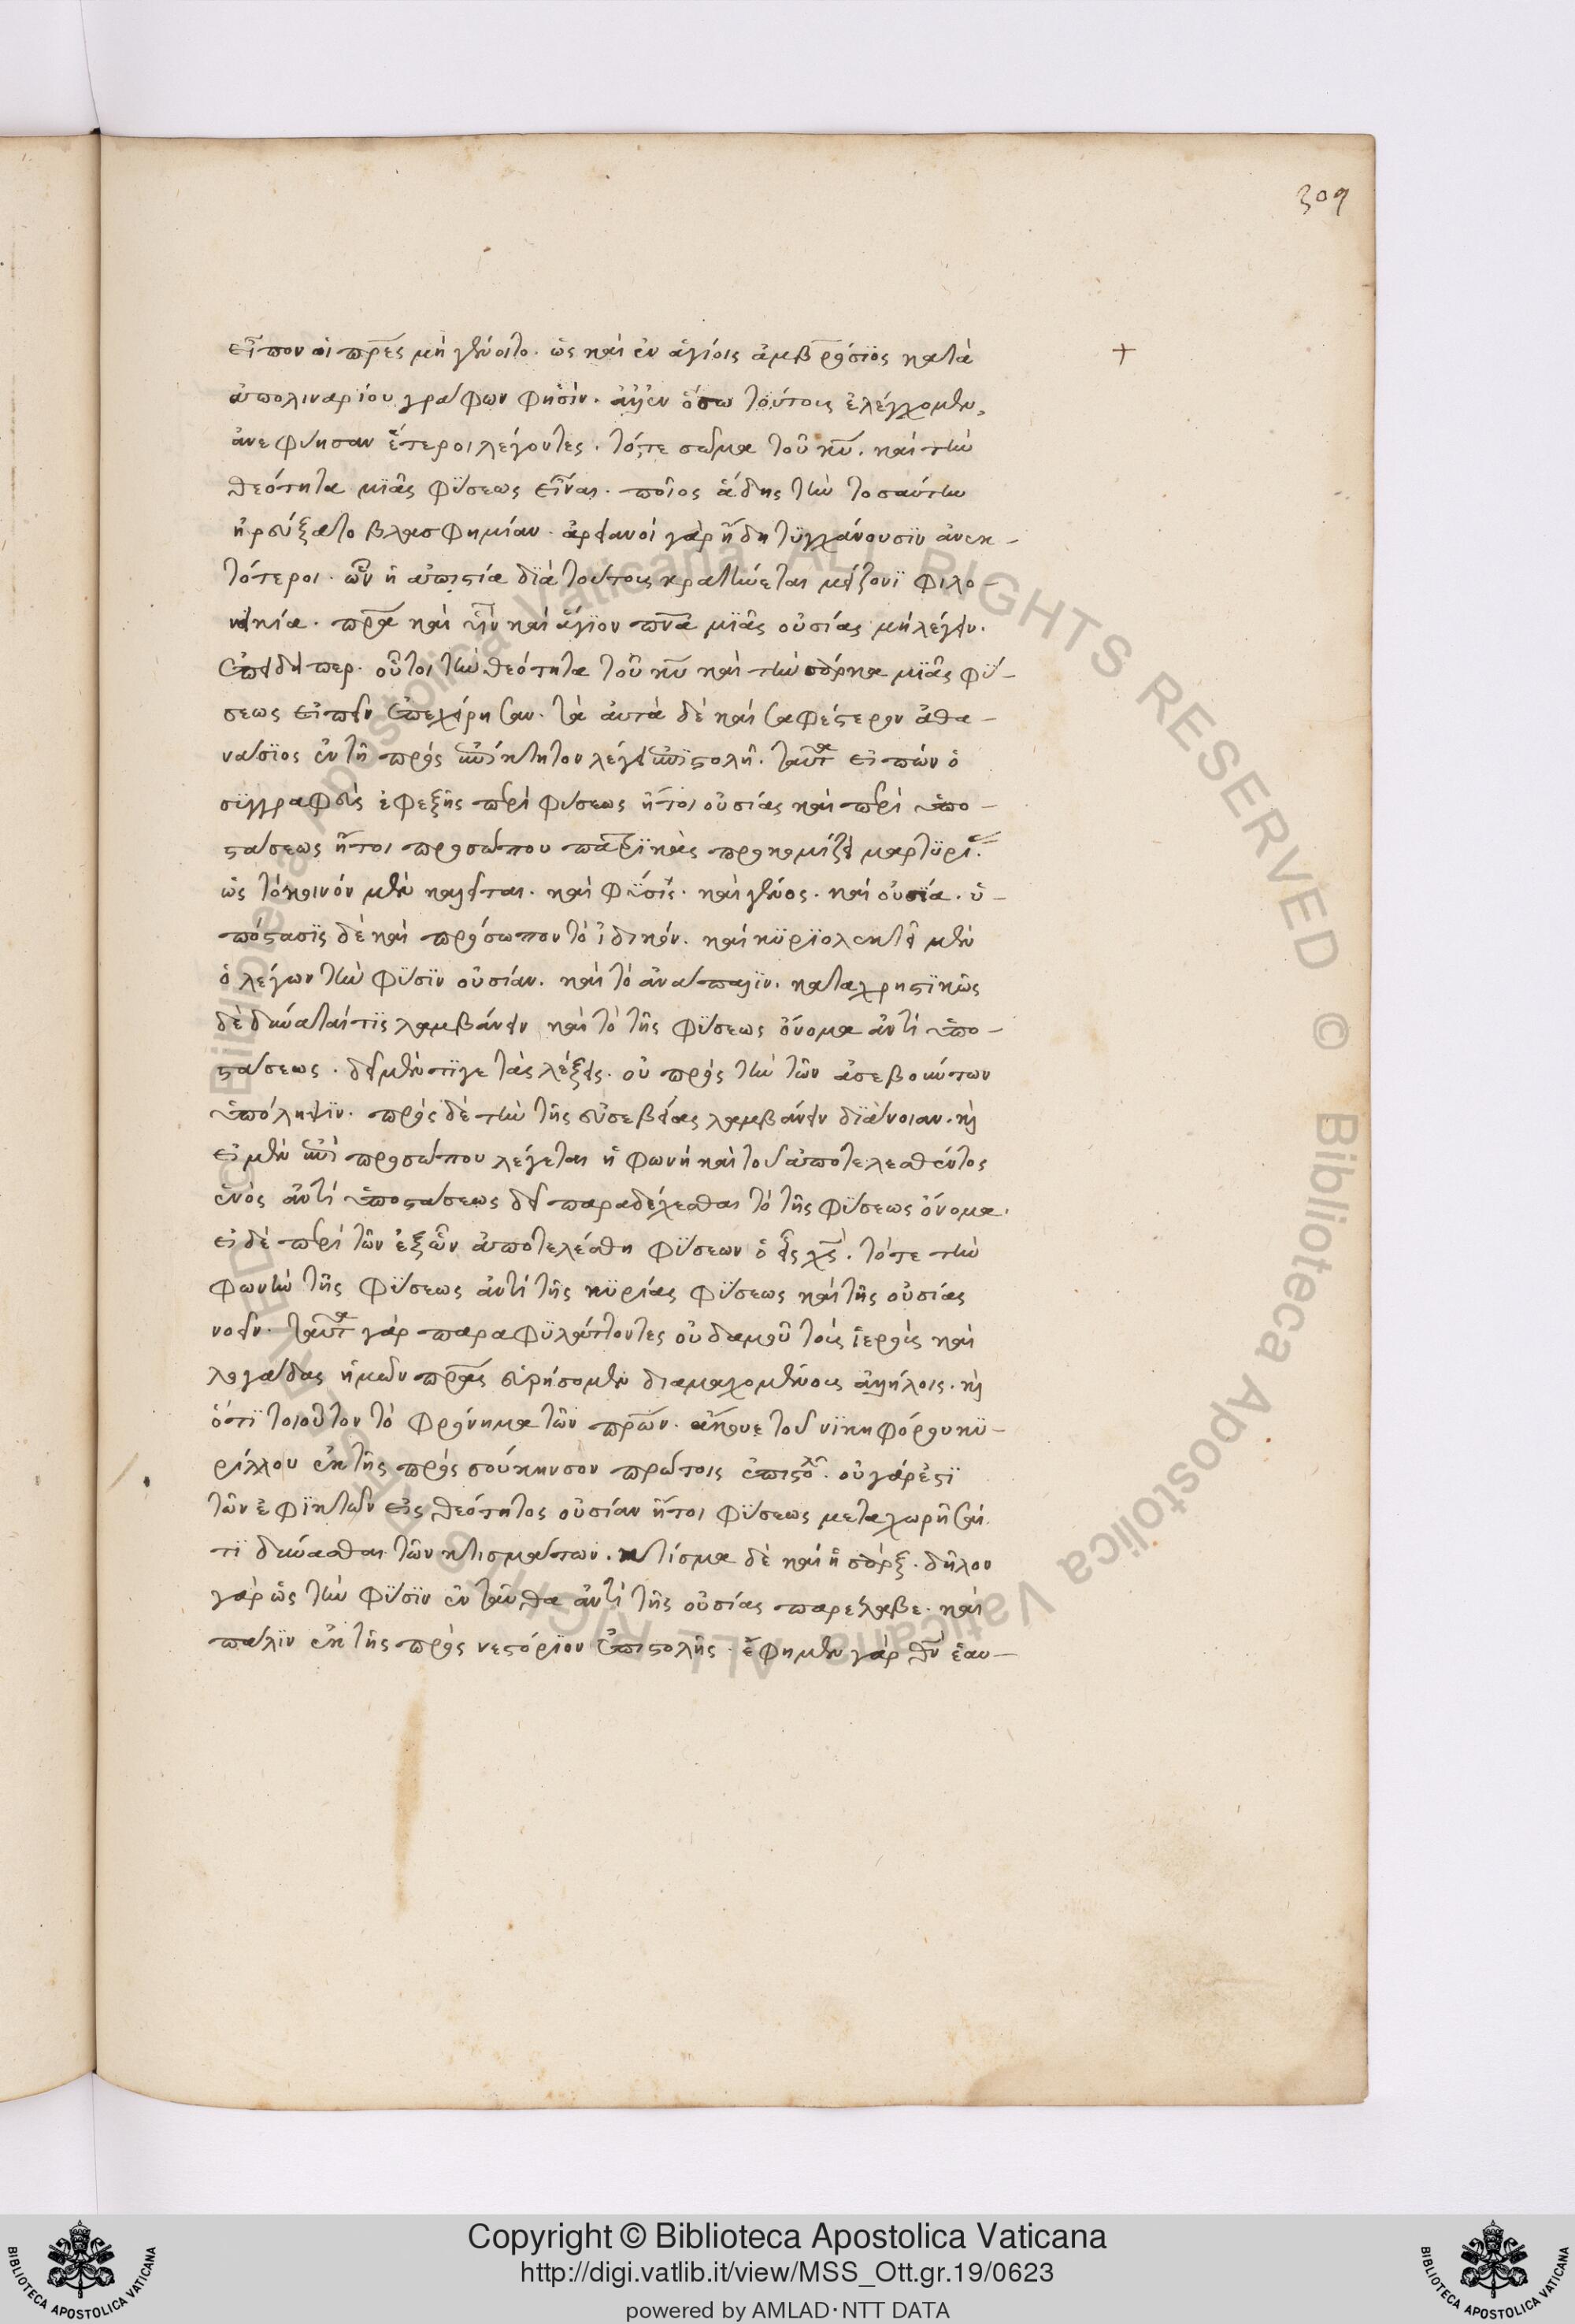 309
εἶπον οἱ πρ̅ε̅ς μὴ γένοιτο. ὡς καὶ ἐν ἁγίοις ἀμβρόσϊος κατὰ
ἀπολιναρίου γράφων φησίν. ἀλλ' ἐν ὅσω τούτοις ἐλέγχομεν,
ἀνεφύησαν ἕτεροι λέγοντες. τό, τε σῶμα τοῦ κ̅υ̅. καὶ τὴν
θεότητα μϊᾶς φύσεως εἶναι. ποῖος ἅδης τὴν τοσαύτην
ἠρεύξατο βλασφημίαν. ἀρειανοὶ γὰρ ἤδη τϋγχάνουσϊν ἀνεκ-
τότεροι. ὧν ἡ ἀπιστία δϊὰ τούτοις κρατύνεται μείζονϊ φιλο-
νεικία. π̅ρ̅α καὶ υ̅ν̅ καὶ ἅγϊον π̅ν̅α̅ μϊᾶς οὐσίας μὴ λέγειν.
ἐπειδήπερ. οὗτοι τὴν θεότητα τοῦ κ̅υ̅ καὶ τὴν σάρκα μϊᾶς φύ-
σεως εἰπεῖν ἐπεχείρησαν. τὰ αὐτὰ δὲ καὶ σαφέστερον ἀθα-
νάσϊος ἐν τῆ πρὸς ἐπίκτητον λέγει ἐπϊστολῆ. ταῦτα εἰπὼν ὁ
σϋγγραφεὺς ἐφεξῆς περὶ φύσεως ἤτοι οὐσίας καὶ περὶ ὑπο-
στάσεως ἤτοι προσώπου π̅ρ̅ϊκὰς προκομίζει μαρτϋρί.
ὡς τὸ κοινὸν μὲν καλεῖται. καὶ φύσϊς. καὶ γένος. καὶ οὐσία. ὑ-
πόστασϊς δὲ καὶ πρόσωπον τὸ ἰδικόν. καὶ κϋρϊολεκτεῖ μὲν
ὁ λέγων τὴν φύσϊν οὐσίαν. καὶ τὸ ἀνάπαλϊν. καταχρηστϊκῶς
δὲ δύναταί τϊς λαμβάνειν καὶ τὸ τῆς φύσεως ὄνομα ἀντὶ ὑπο-
στάσεως. δεῖ μέντϊγε τὰς λέξεις. οὐ πρὸς τὴν τῶν ἀσεβούντων
ὑπόληψϊν. πρὸς δὲ τὴν τῆς εὐσεβείας λαμβάνειν δϊάνοιαν. κὶ
εἰ μὲν ἐπὶ προσώπου λέγεται ἡ φωνὴ καὶ τοῦ ἀποτελεσθέντος
ἑνὸς ἀντὶ ὑποστάσεως δεῖ παραδέχεσθαι τὸ τῆς φύσεως ὄνομα.
εἰ δὲ περὶ τῶν ἐξ ὧν ἀποτελέσθη φύσεων ὁ εἷς χ̅ς̅. τότε τὴν
φωνὴν τῆς φύσεως ἀντὶ τῆς κϋρίας φύσεως καὶ τῆς οὐσίας
νοεῖν. ταῦτα γὰρ παραφϋλάττοντες οὐδαμοῦ τοὺς ἱεροὺς καὶ
λογάδας ἡμῶν π̅ρ̅α̅ς εὑρήσομεν διαμαχομένους ἀλλήλοις. κὶ
ὅτϊ τοιοῦτον τὸ φρόνημα τῶν π̅ρ̅ω̅ν. ἄκουε τοῦ νϊκηφόρου κϋ-
ρίλλου ἐκ τῆς πρὸς σούκηνσον πρώτοις ἐπιστολ. οὐ γάρ ἐστϊ
τῶν ἐφϊκτῶν εἰς θεότητος οὐσίαν ἤτοι φύσεως μεταχωρῆσαί
τϊ δύνασθαι τῶν κτισμάτων. κτίσμα δὲ καὶ ἡ σάρξ. δῆλον
γὰρ ὡς τὴν φύσϊν ἐνταῦθα ἀντὶ τῆς οὐσίας παρέλαβε. καὶ
πάλϊν ἐκ τῆς πρὸς νεστόρϊον ἐπιστολῆς. ἔφημεν γὰρ θ̅ν̅ ἑαυ-
Copyright © Biblioteca Apostolica Vaticana
http://digi.vatlib.it/view/MSS_Ott.gr.19/0623
powered by AMLAD·NTT DATA